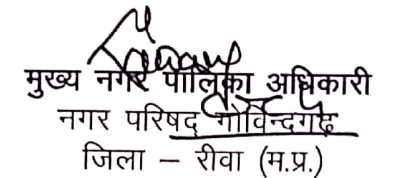 मुख्य नगर पालिका अधिकारी
नगर परिषद गोविन्दगढ
जिला – रीवा (म.प्र.)